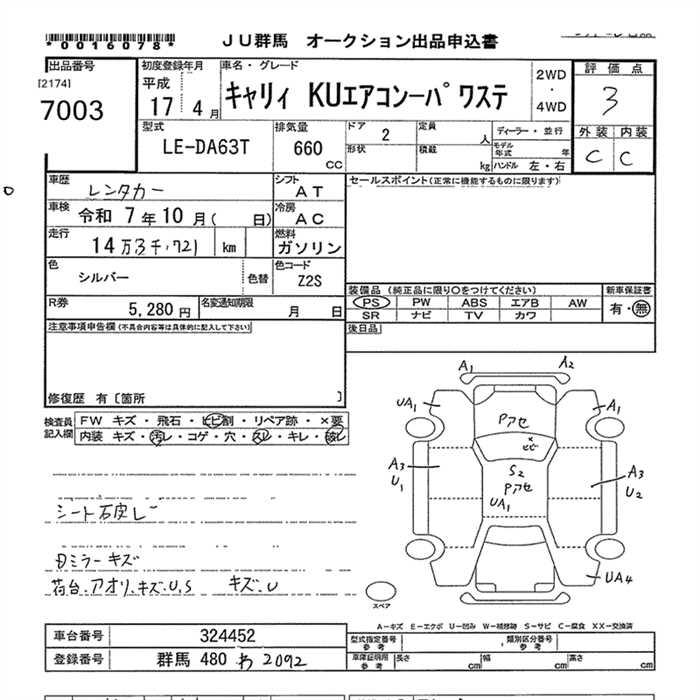 *0016078*
JU群馬 オークション出品申込書
出品番号
[2174]
7003
初度登録年月
平成
17年 4月
車名・グレード
キャリィ KUエアコン-パワステ
2WD
・
4WD
評価点
3
外装 内装
C C
型式
LE-DA63T
排気量
660
CC
ドア 2
形状
定員 人
積載 kg
ディーラー・並行
モデル年式 年
ハンドル 左・右
車歴 レンタカー
シフト AT
車検 令和 7年10月( 日)
冷房 AC
走行 14万3千,721 km
燃料 ガソリン
色 シルバー
色替
色コード Z2S
R券 5,280円
名変通知期限 月 日
セールスポイント(正常に機能するものに限ります)
装備品 (純正品に限り○をつけてください)
PS PW ABS エアB AW
SR ナビ TV カワ
新車保証書
有・無
後日品
注意事項申告欄(不具合内容等は具体的に記入して下さい)
修復歴 有〔箇所 〕
検査員
記入欄
FW キズ・飛石・ヒビ割・リペア跡・×要
内装 キズ・汚レ・コゲ・穴・スレ・キレ・破レ
シート石皮レ
日ミラーキズ
荷台.アオリ.キズ.U,S キズ.U
A1 A2
UA1 A1
Pアセ
×ヒビ
A3
U1
S2
Pアセ
UA1
A3
U2
UA4
スペア
A-キズ E-エクボ U-凹み W-補修跡 S-サビ C-腐食 XX-交換済
車台番号 324452
登録番号 群馬 480 わ 2092
型式指定番号
参考
類別区分番号
参考
車庫証明用
参考
長さ cm
幅 cm
高さ cm